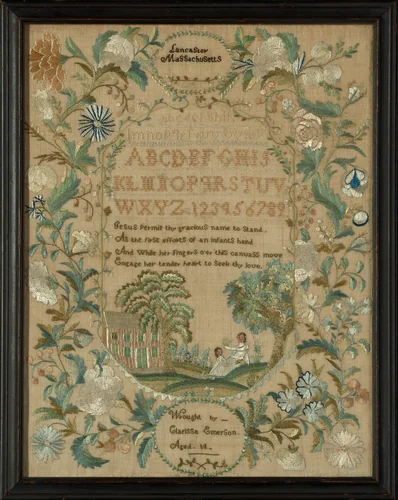 Lancaster
Massachusetts
ABCDEFGHIJ
KLMNOPQRSTUV
WXYZ.123456789
Jesus Permit thy gracious name to stand.
As the first efforts of an infants hand
And While her fingers o er this canvass move
Engage her tender heart to Seek thy love.
Wrought by
Clarisse Emerson.
Aged. 14.